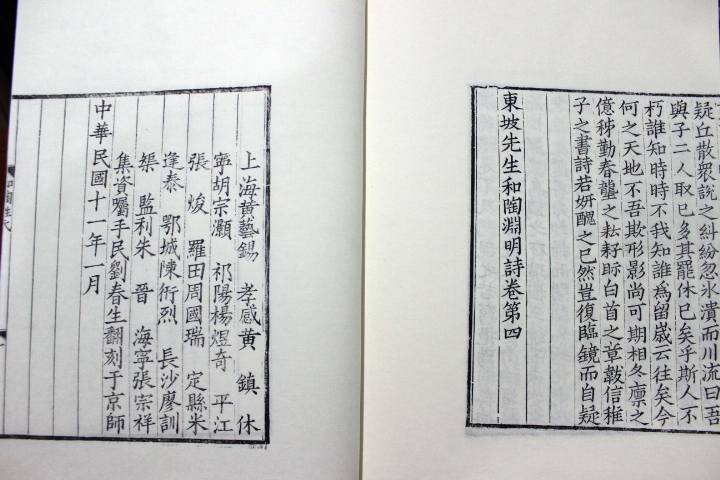 疑丘散衆說之糾紛忽氷潰而川流曰吾
與子二人取已多其罷休已矣乎斯人不
朽誰知時時不我知誰為留歲云往矣今
何之天地不吾欺形影尚可期相冬廪之
億秭勤春壟之耘耔眎白首之章韍信稚
子之書詩若妍醜之已然豈復臨鏡而自疑
東坡先生和陶淵明詩卷第四
上海黄藝錫 孝感黄 鎮 休
寧胡宗灝 祁陽楊煜奇 平江
張 焌 羅田周國瑞 定縣米
逢泰 鄂城陳衍烈 長沙廖訓
榘 監利朱 晉 海寧張宗祥
集資囑手民劉春生翻刻于京師
中華民國十一年一月